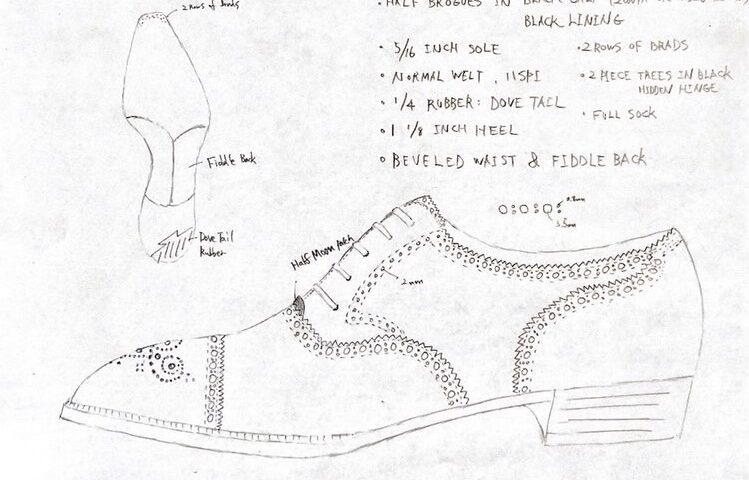 2 Rows of Brads
• HALF BROGUES IN BLACK CALF
BLACK LINING
• 5/16 INCH SOLE
• NORMAL WELT, 11SPI
• 1/4 RUBBER: DOVE TAIL
• 1 1/8 INCH HEEL
• BEVELED WAIST & FIDDLE BACK
• 2 ROWS OF BRADS
• 2 PIECE TREES IN BLACK
HIDDEN HINGE
• FULL SOCK
Fiddle Back
Dove Tail
Rubber
Half Moon Patch
2mm